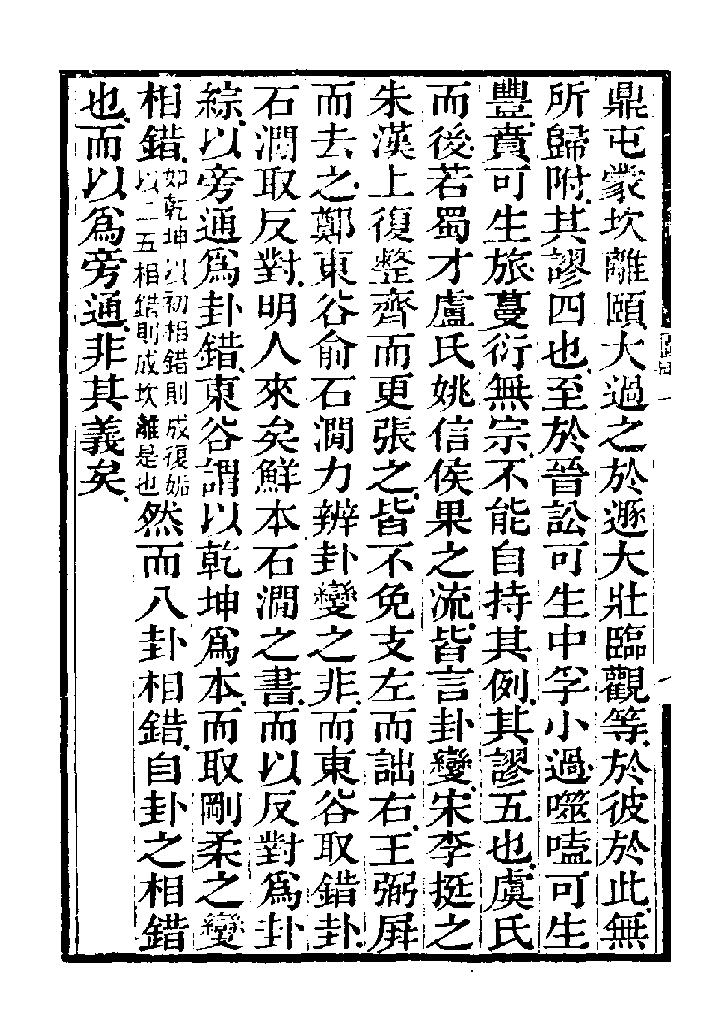 鼎屯蒙坎離頤大過之於遯大壯臨觀等於彼於此無
所歸附其謬四也至於晉訟可生中孚小過噬嗑可生
豐賁可生旅蔓衍無宗不能自持其例其謬五也虞氏
而後若蜀才盧氏姚信侯果之流皆言卦變宋李挺之
朱漢上復整齊而更張之皆不免支左而詘右王弼屏
而去之鄭東谷俞石澗力辨卦變之非而東谷取錯卦
石澗取反對明人來矣鮮本石澗之書而以反對爲卦
綜以旁通爲卦錯東谷謂以乾坤爲本而取剛柔之變
相錯如乾坤以初相錯則成復姤以二五相錯則成坎離是也然而八卦相錯自卦之相錯
也而以爲旁通非其義矣